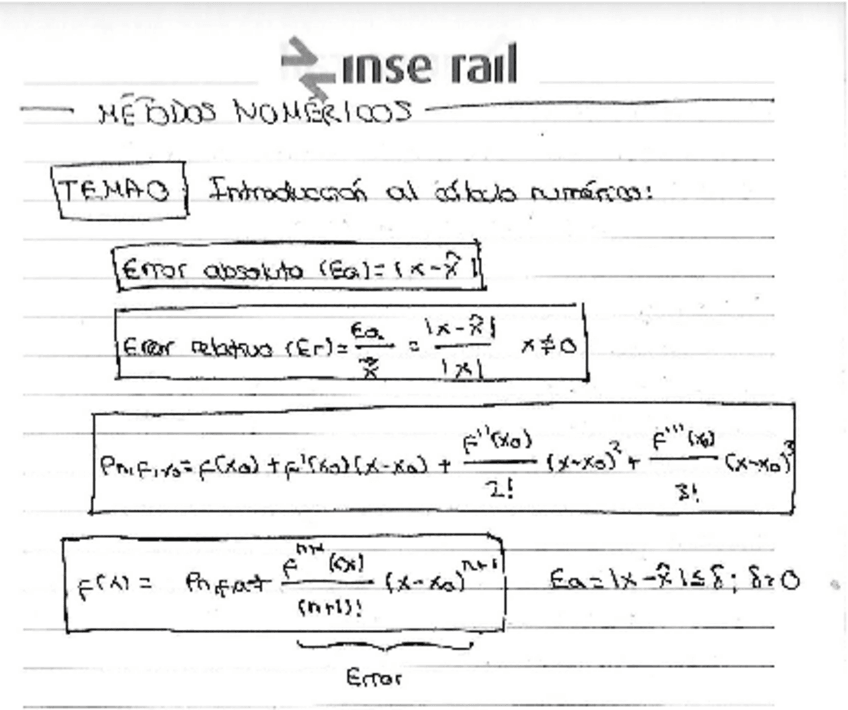 inse rail
MÉTODOS NUMÉRICOS
TEMA 0 Introducción al cálculo numérico:
Error absoluto (Ea) = |x - x̂|
Error relativo (Er) = Ea/x̂ = |x - x̂|/|x| x ≠ 0
Pn,f,x₀ = f(x₀) + f'(x₀)(x-x₀) + f''(x₀)/2! (x-x₀)² + f'''(x₀)/3! (x-x₀)³
f(x) = Pn,f,a + fⁿ⁺¹(cx)/(n+1)! (x-x₀)ⁿ⁺¹ Ea = |x - x̂| ≤ δ; δ>0
Error